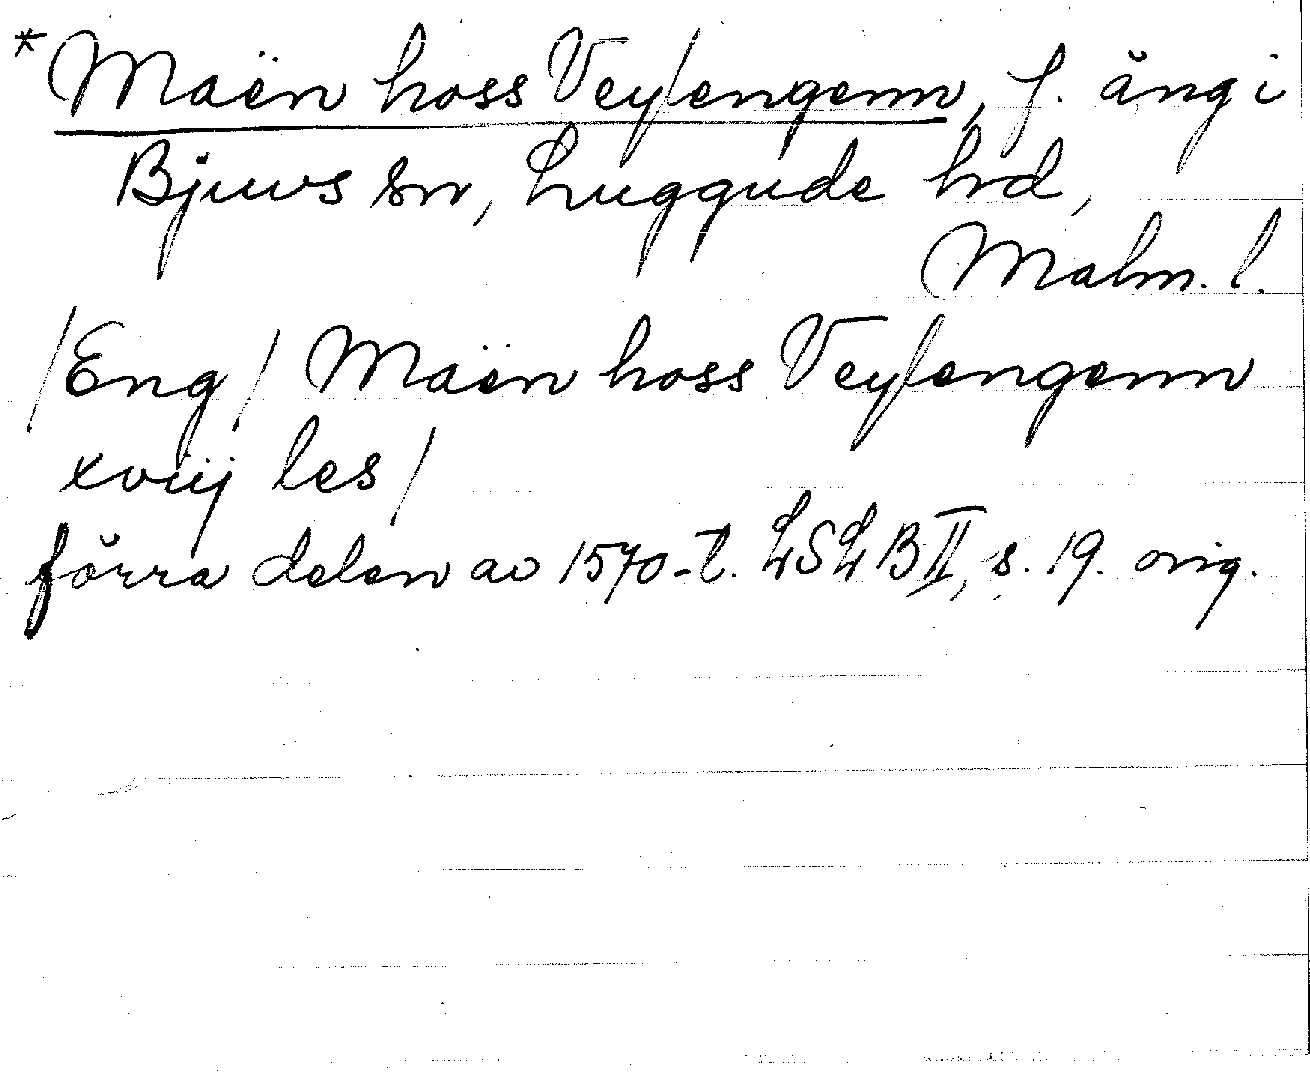 *Maën hoss Veyſengenn, f. äng i
Bjuvs sn, Luggude hd,
Malm. l.
/Eng/ Maën hoss Veyſengenn
xviij les/
förra delen av 1570-t. LSLB II, s. 19. orig.